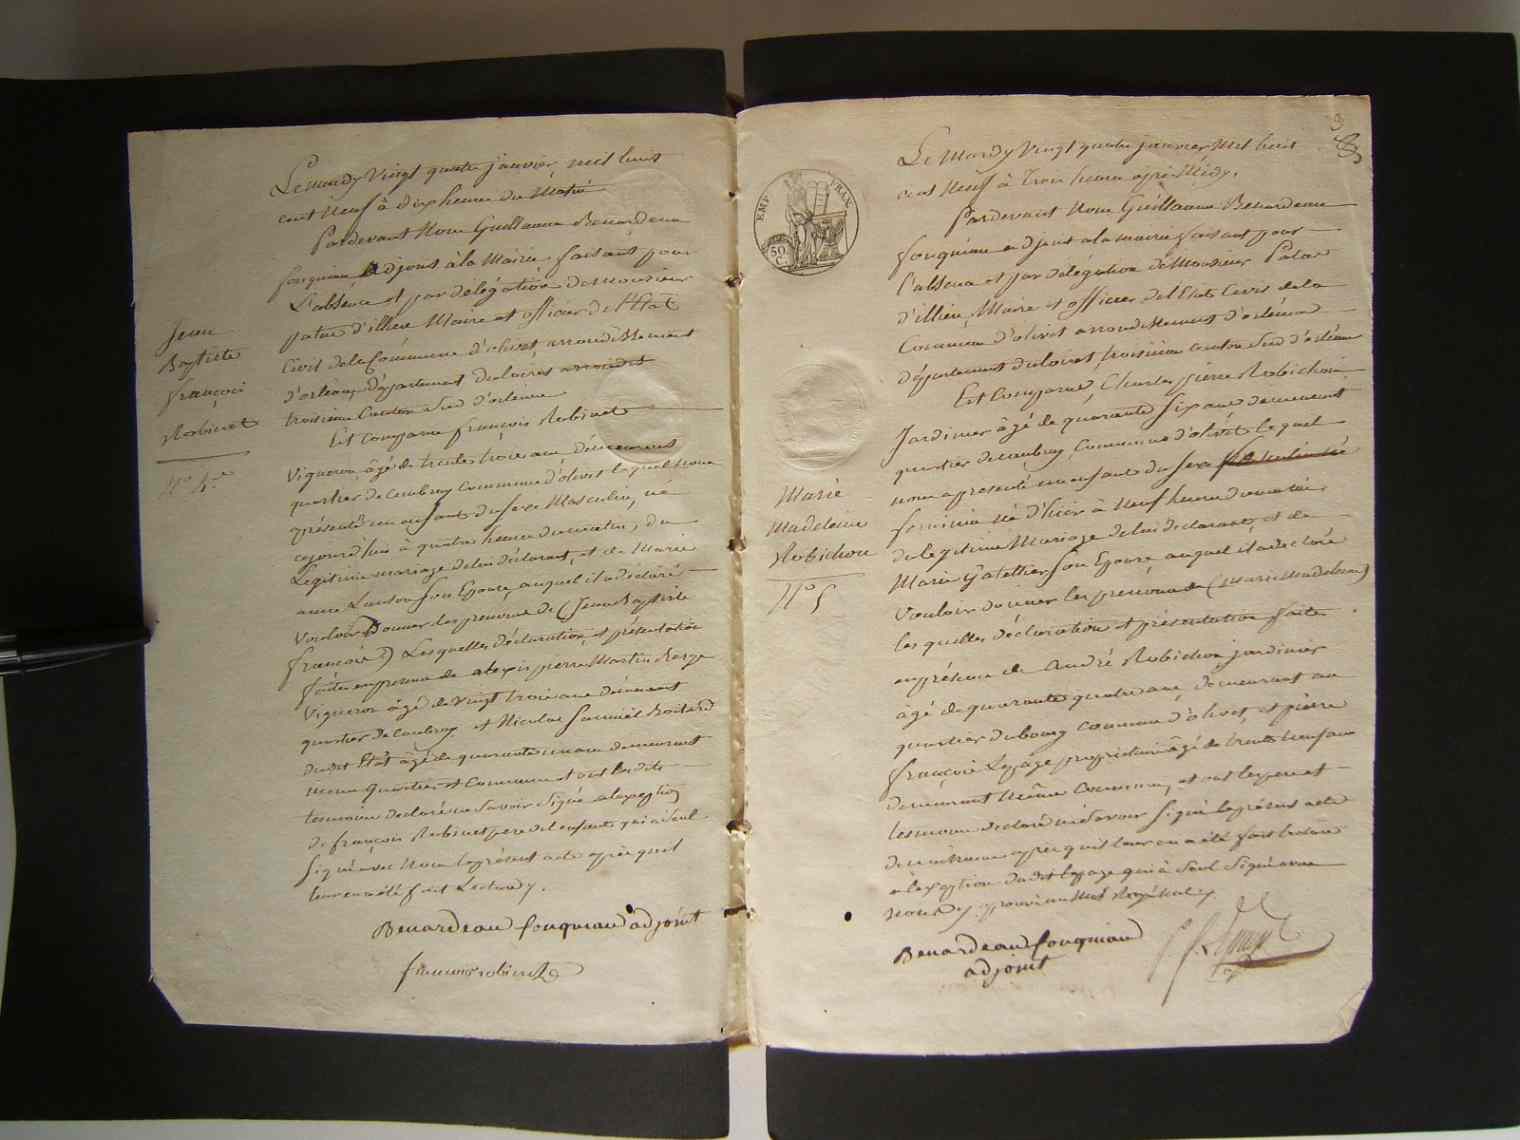 Jean
Baptiste
françois
Robinet
N° 4.e
Le mardy Vingt quatre janvier, mil huit
cent Neuf à dix heure du Matin
Pardevant Nous Guillaume Benardeau
fouqueau Adjoint à la Mairie, faisant pour
L'absence et par délégation de Monsieur
patas d'illiers Maire et officier de l'Etat
Civil de la Commune d'olivet, arrondissement
d'orleans, département du loiret
troisieme Canton Sud d'orleans
Est comparu françois Robinet
Vigneron, âgé de trente trois ans, demeurant
quartier de Caubray Commune d'olivet lequel nous
a présenté un enfant du sexe Masculin, né
cejourd'hui à quatre heure du matin, du
Legitime mariage de lui déclarant, et de Marie
anne son Epouse, auquel il a déclaré
Vouloir Donner les prenoms de (Jean Baptiste
françois) Lesquelles déclaration et présentation
faites en presence de alexis pierre Martin
Vigneron âgé de Vingt trois ans demeurant
quartier de Caubray et Nicolas
dudit Etat âgé de quarante un ans demeurant
meme quartier et Commune et ont lesdits
temoins declaré ne Savoir Signé a l'exeption
de françois Robinet pere de l'enfant qui a seul
Signé avec Nous le présent acte après qu'il
leur en a été fait Lecture.
Benardeau fouqueau adjoint
francois robinet
EMP. FRAN.
50
C.
Marie
Madeleine
Robichon
N° 5
Le Mardy Vingt quatre janvier Mil huit
cent Neuf à Trois heure après Midy.
Pardevant Nous Guillaume Benardeau
fouqueau adjoint a la mairie faisant pour
l'absence et par délégation de Monsieur Patas
d'illiers, Maire et officier de l'Etat Civil de la
Commune d'olivet arrondissement d'orleans
département du loiret, troisieme canton Sud d'orleans
Est Comparu Charles pierre Robichon
Jardinier âgé de quarante Six ans demeurant
quartier de caubray Commune d'olivet lequel
nous a presenté un enfant du sexe
feminin né d'hier à Neuf heure du matin
du legitime Mariage de lui declarant, et de
Marie Son Epouse auquel il a declaré
Vouloir donner les prenoms de (Marie Madeleine)
lesquelles déclaration et présentation faite
en présence de André Robichon jardinier
âgé de quarante quatre ans, demeurant au
quartier du bourg Commune d'olivet, et pierre
françois Lepage propriétaire âgé de trente neuf ans
demeurant même Commune, et ont les pere et
temoins declaré ne Savoir Signé le présent acte
de naissance après qu'il leur en a été fait lecture
a l'exeption dudit lepage qui a Seul Signé avec
Nous
Benardeau fouqueau
adjoint